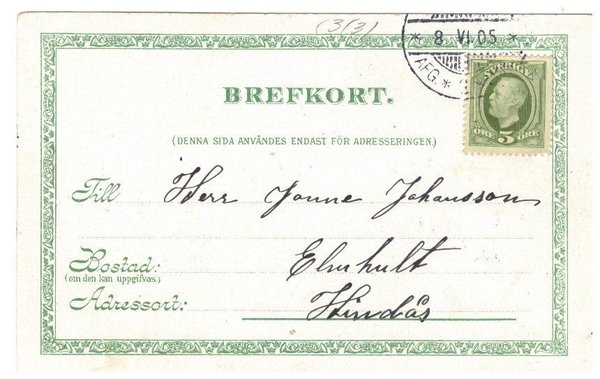 (3/3)
* 8 VI 05 *
AFG. *
SVERIGE
ÖRE 5 ÖRE
BREFKORT.
(DENNA SIDA ANVÄNDES ENDAST FÖR ADRESSERINGEN.)
Till Herr Jonne Johansson
Bostad: Elmhult
(om den kan uppgifvas.)
Adressort: Hindås